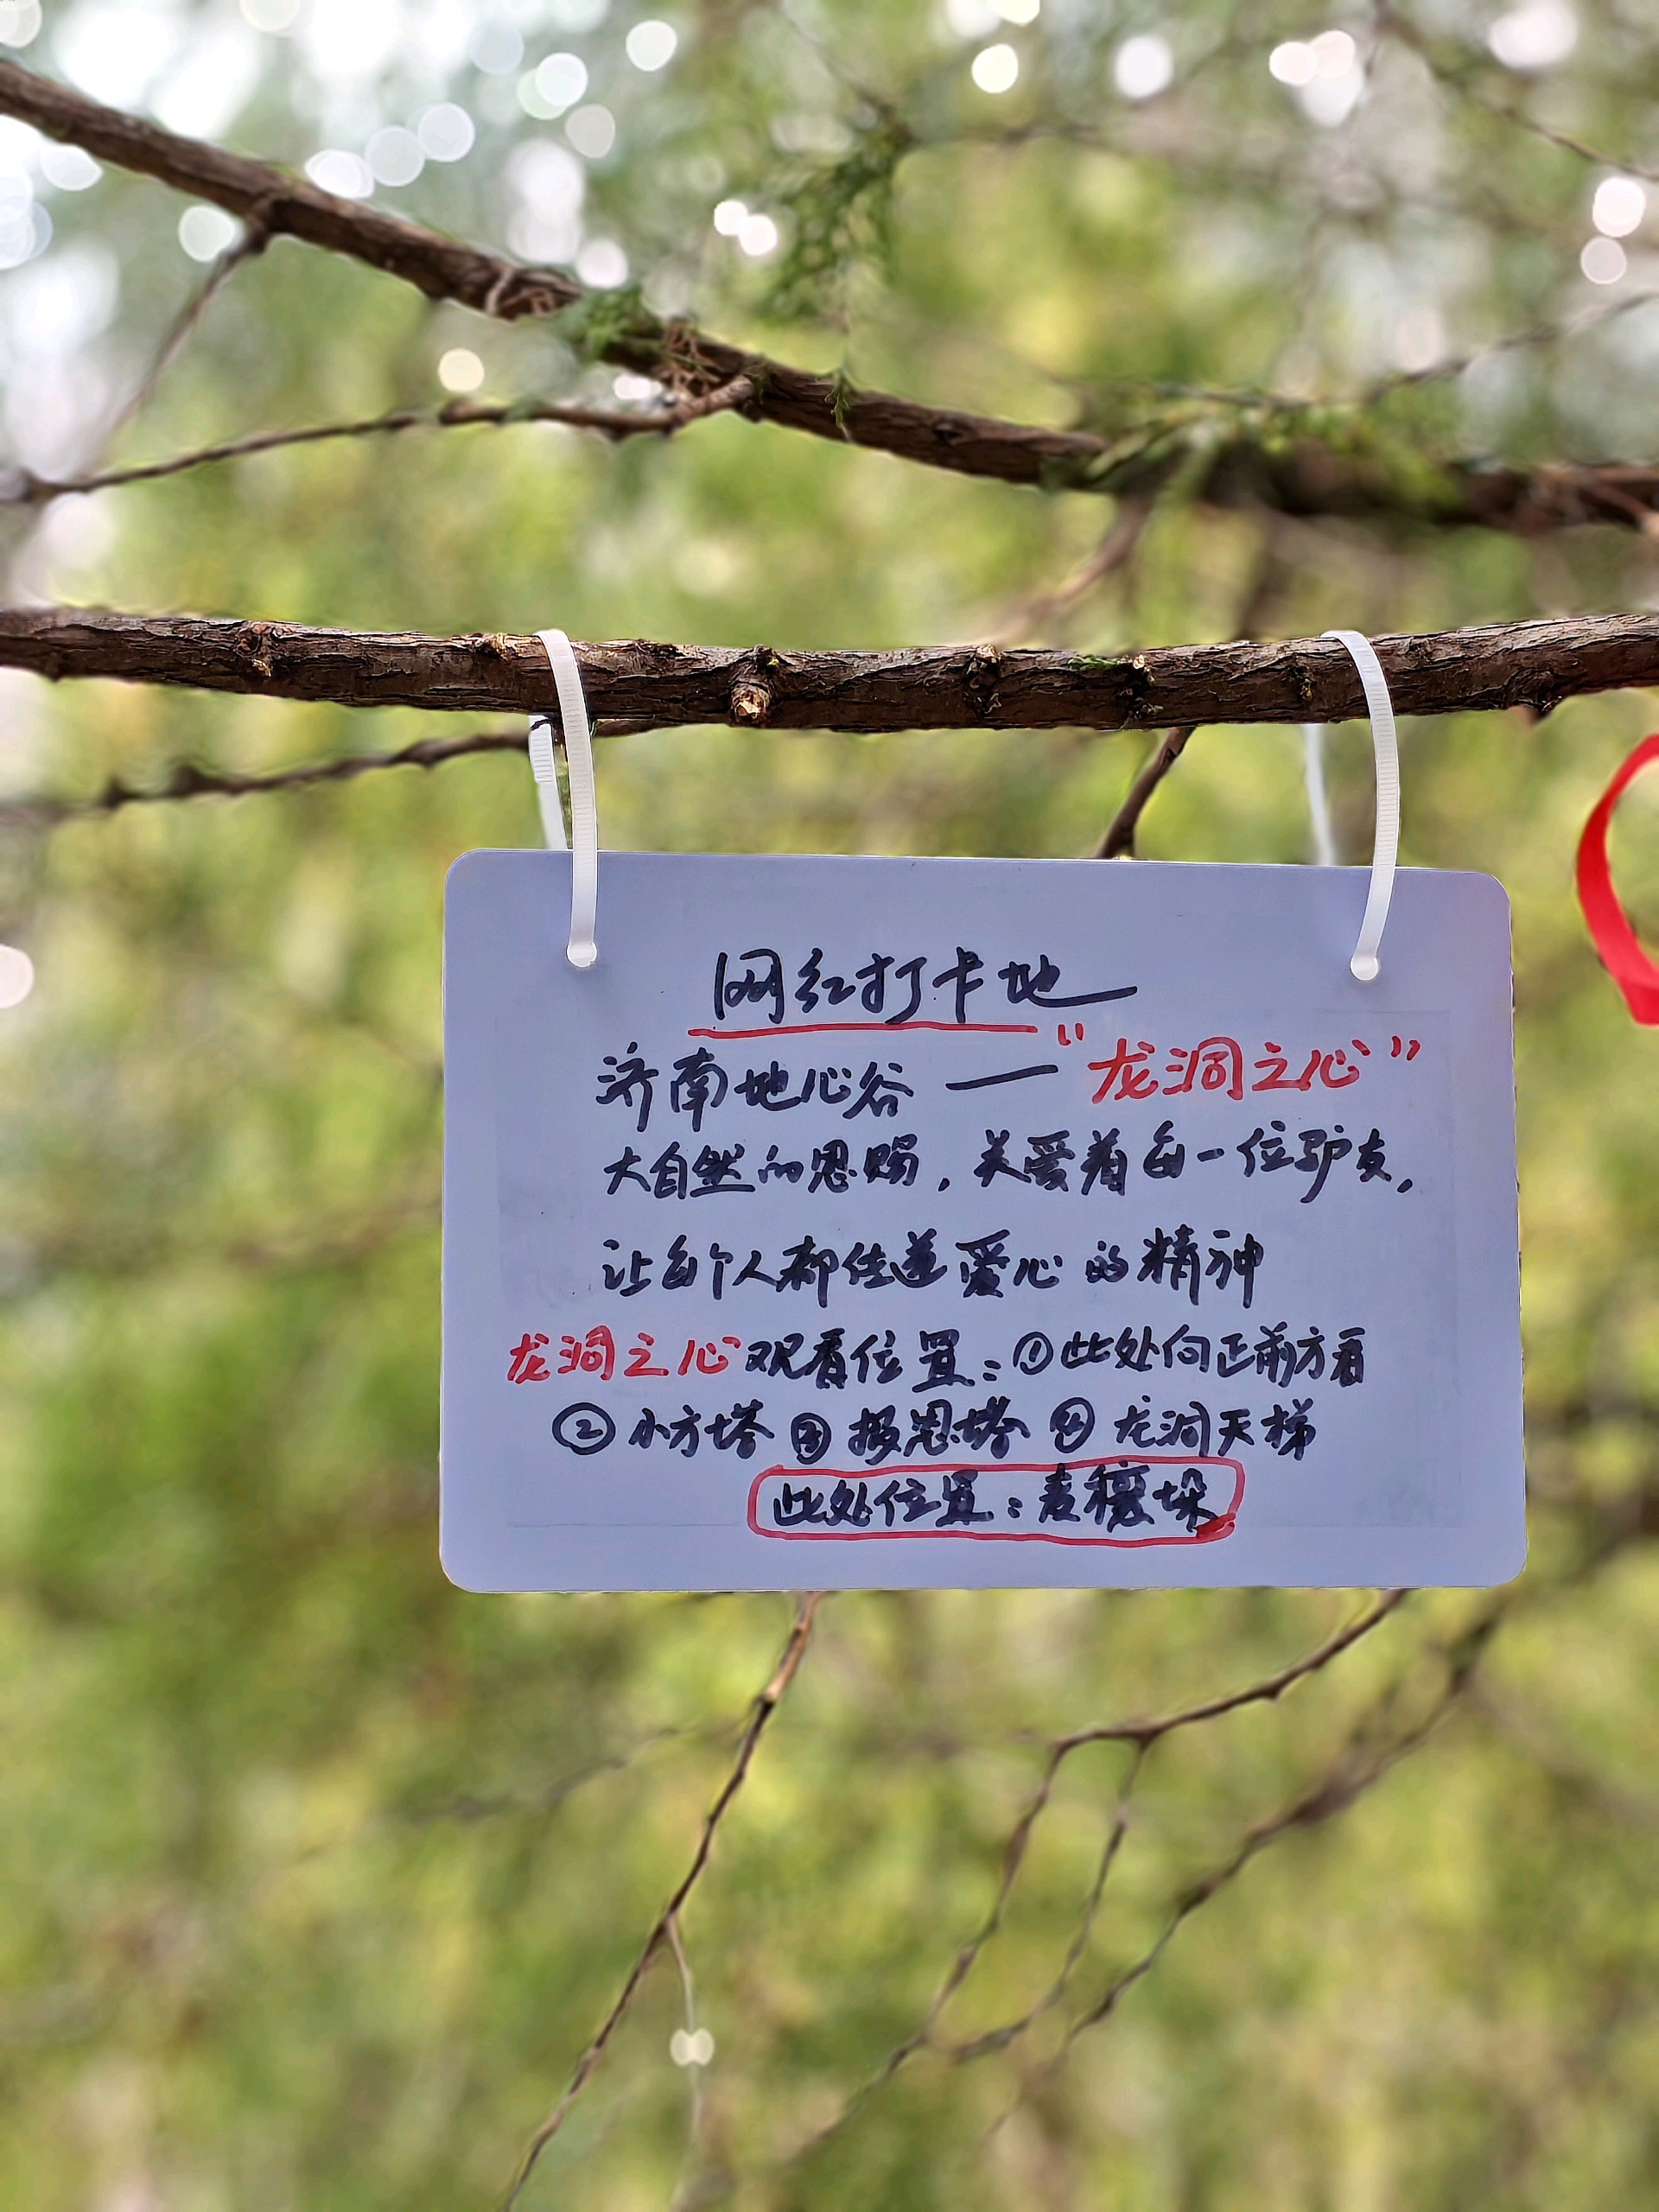 网红打卡地
济南地心谷——“龙洞之心”
大自然的恩赐，关爱着每一位驴友，
让每个人都传递爱心的精神
龙洞之心观看位置：①此处向正前方看
②小方塔③报恩塔④龙洞天梯
此处位置：麦穰垛